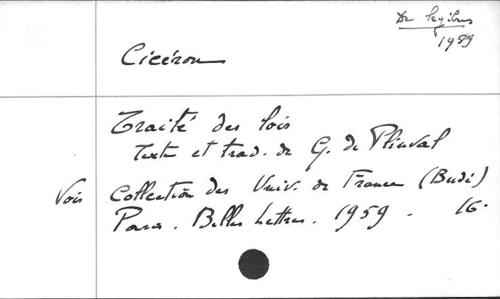 De legibus
1959
Cicéron
Traité des lois
Texte et trad. de G. de Plinval
Vois Collection des Univ. de France (Budé)
Paris. Belles Lettres. 1959. 16.